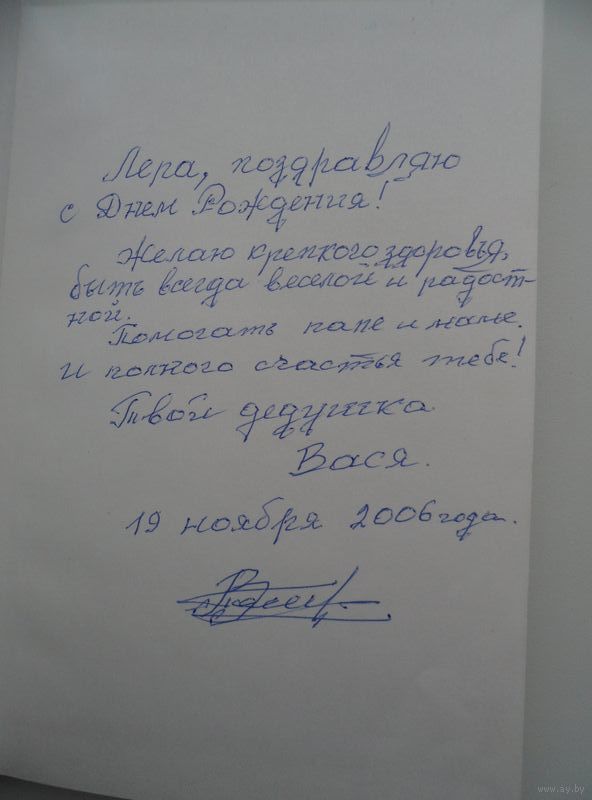 Лера, поздравляю
с Днем Рождения!
Желаю крепкого здоровья,
быть всегда веселой и радост-
ной.
Помогать папе и маме.
И полного счастья тебе!
Твой дедушка
Вася.
19 ноября 2006 года.
www.ay.by